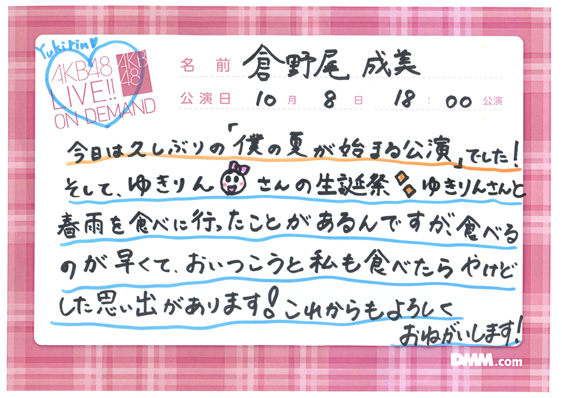 Yukirin♡
AKB48
LIVE!!
ON DEMAND
AKB
48
名前 倉野尾 成美
公演日 10月 8日 18:00公演
今日は久しぶりの「僕の夏が始まる公演」でした!
そして、ゆきりんさんの生誕祭 ゆきりんさんと
春雨を食べに行ったことがあるんですが、食べる
のが早くて、おいつこうと私も食べたらやけど
した思い出があります!これからもよろしく
おねがいします!
DMM.com